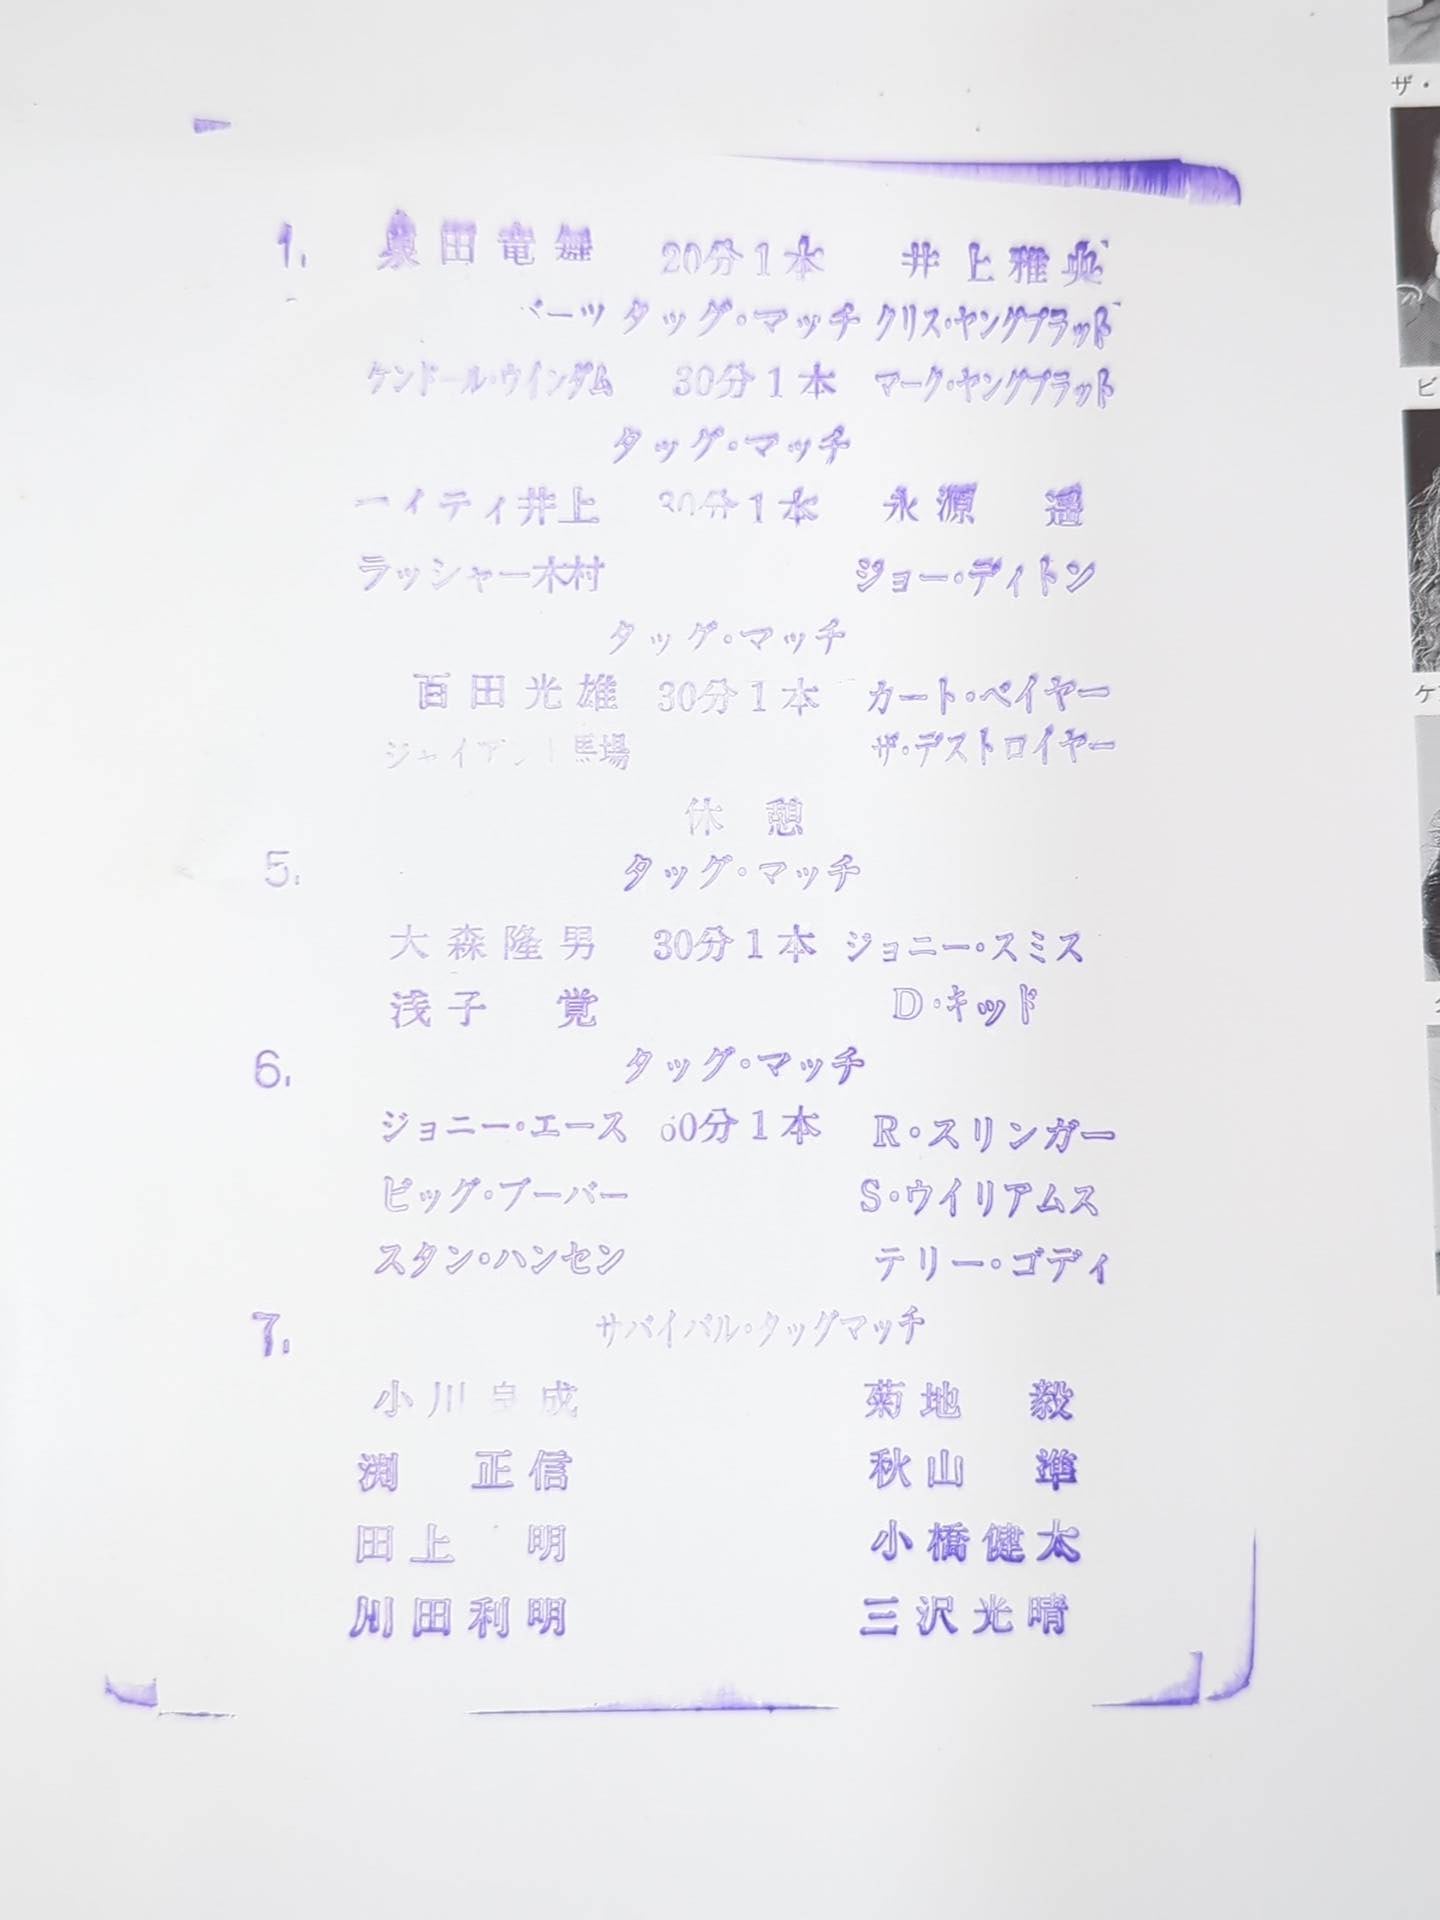 1. 泉田竜舞 20分1本 井上雅央
バーツ タッグ・マッチ クリス・ヤングブラッド
ケンドール・ウインダム 30分1本 マーク・ヤングブラッド
タッグ・マッチ
ーイティ井上 30分1本 永源 遥
ラッシャー木村 ジョー・ディトン
タッグ・マッチ
百田光雄 30分1本 カート・ベイヤー
ジャイアント馬場 ザ・デストロイヤー
休憩
5. タッグ・マッチ
大森隆男 30分1本 ジョニー・スミス
浅子 覚 D・キッド
6. タッグ・マッチ
ジョニー・エース 60分1本 R・スリンガー
ビッグ・ブーバー S・ウイリアムス
スタン・ハンセン テリー・ゴディ
7. サバイバル・タッグマッチ
小川良成 菊地 毅
渕 正信 秋山 準
田上 明 小橋健太
川田利明 三沢光晴
ザ・
ビ
ケ